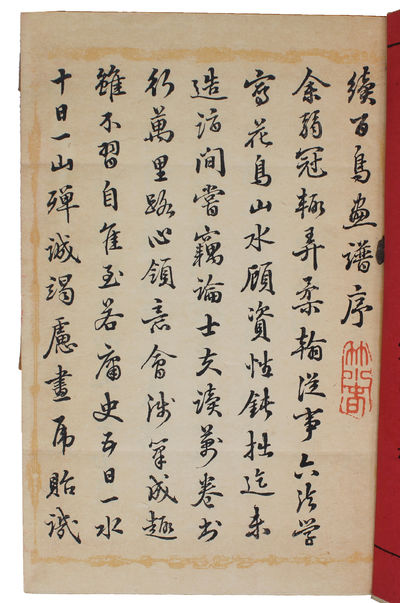 續百鳥畫譜序
余弱冠輒弄柔翰從事六法学
寫花鳥山水顧資性鈍拙迄未
造詣間嘗竊論士夫讀萬卷书
行萬里路心領意會涉筆成趣
雖不習自佳至若庸史五日一水
十日一山殫誠竭慮畫虎貽譏